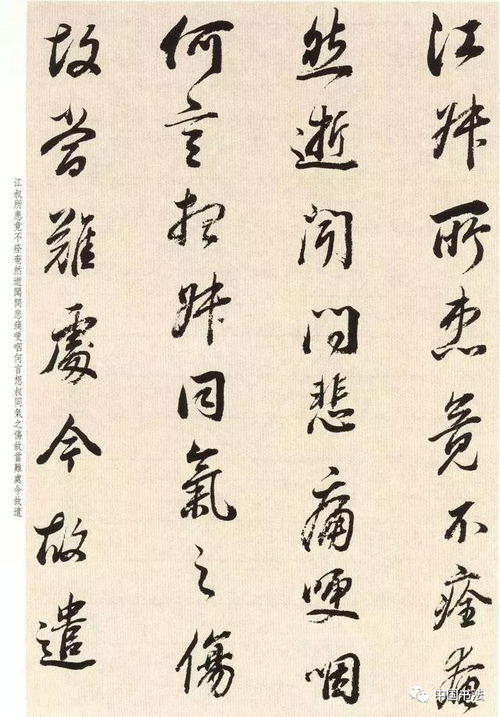 江叔所患竟不痊奄
然逝闻问悲痛哽咽
何言想叔同氣之傷
故當難處今故遣
江叔所患竟不痊奄然逝聞問悲痛哽咽何言想叔同氣之傷故當難處今故遣
中国书法